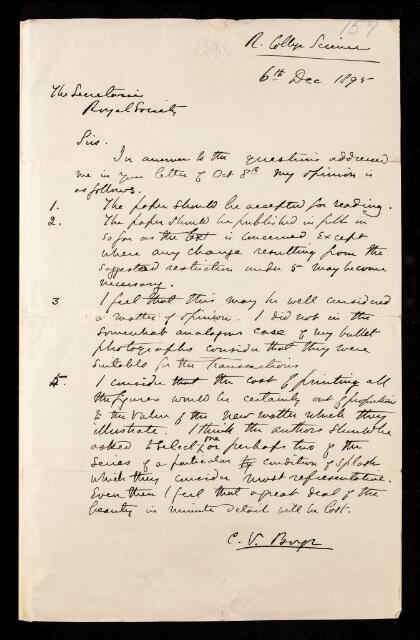 159
R. College Science
6th Dec 1895
The Secretaries
Royal Society
Sirs.
In answer to the questions addressed
me in your letter of Oct 8th my opinion is
as follows.
1. The paper should be accepted for reading.
2. The paper should be published in full in
so far as the text is concerned except
where any change resulting from the
suggested restriction under 5 may become
necessary.
3 I feel that this may be well considered
a matter of opinion. I did not in the
somewhat analogous case of my bullet
photographs consider that they were
suitable for the Transactions
5. I consider that the cost of printing all
the figures would be certainly out of proportion
to the value of the new matter which they
illustrate. I think the authors should be
asked to select one or perhaps two of the
series of a particular condition of splash
which they consider most representative.
Even then I feel that a great deal of the
beauty in minute detail will be lost.
C. V. Boys